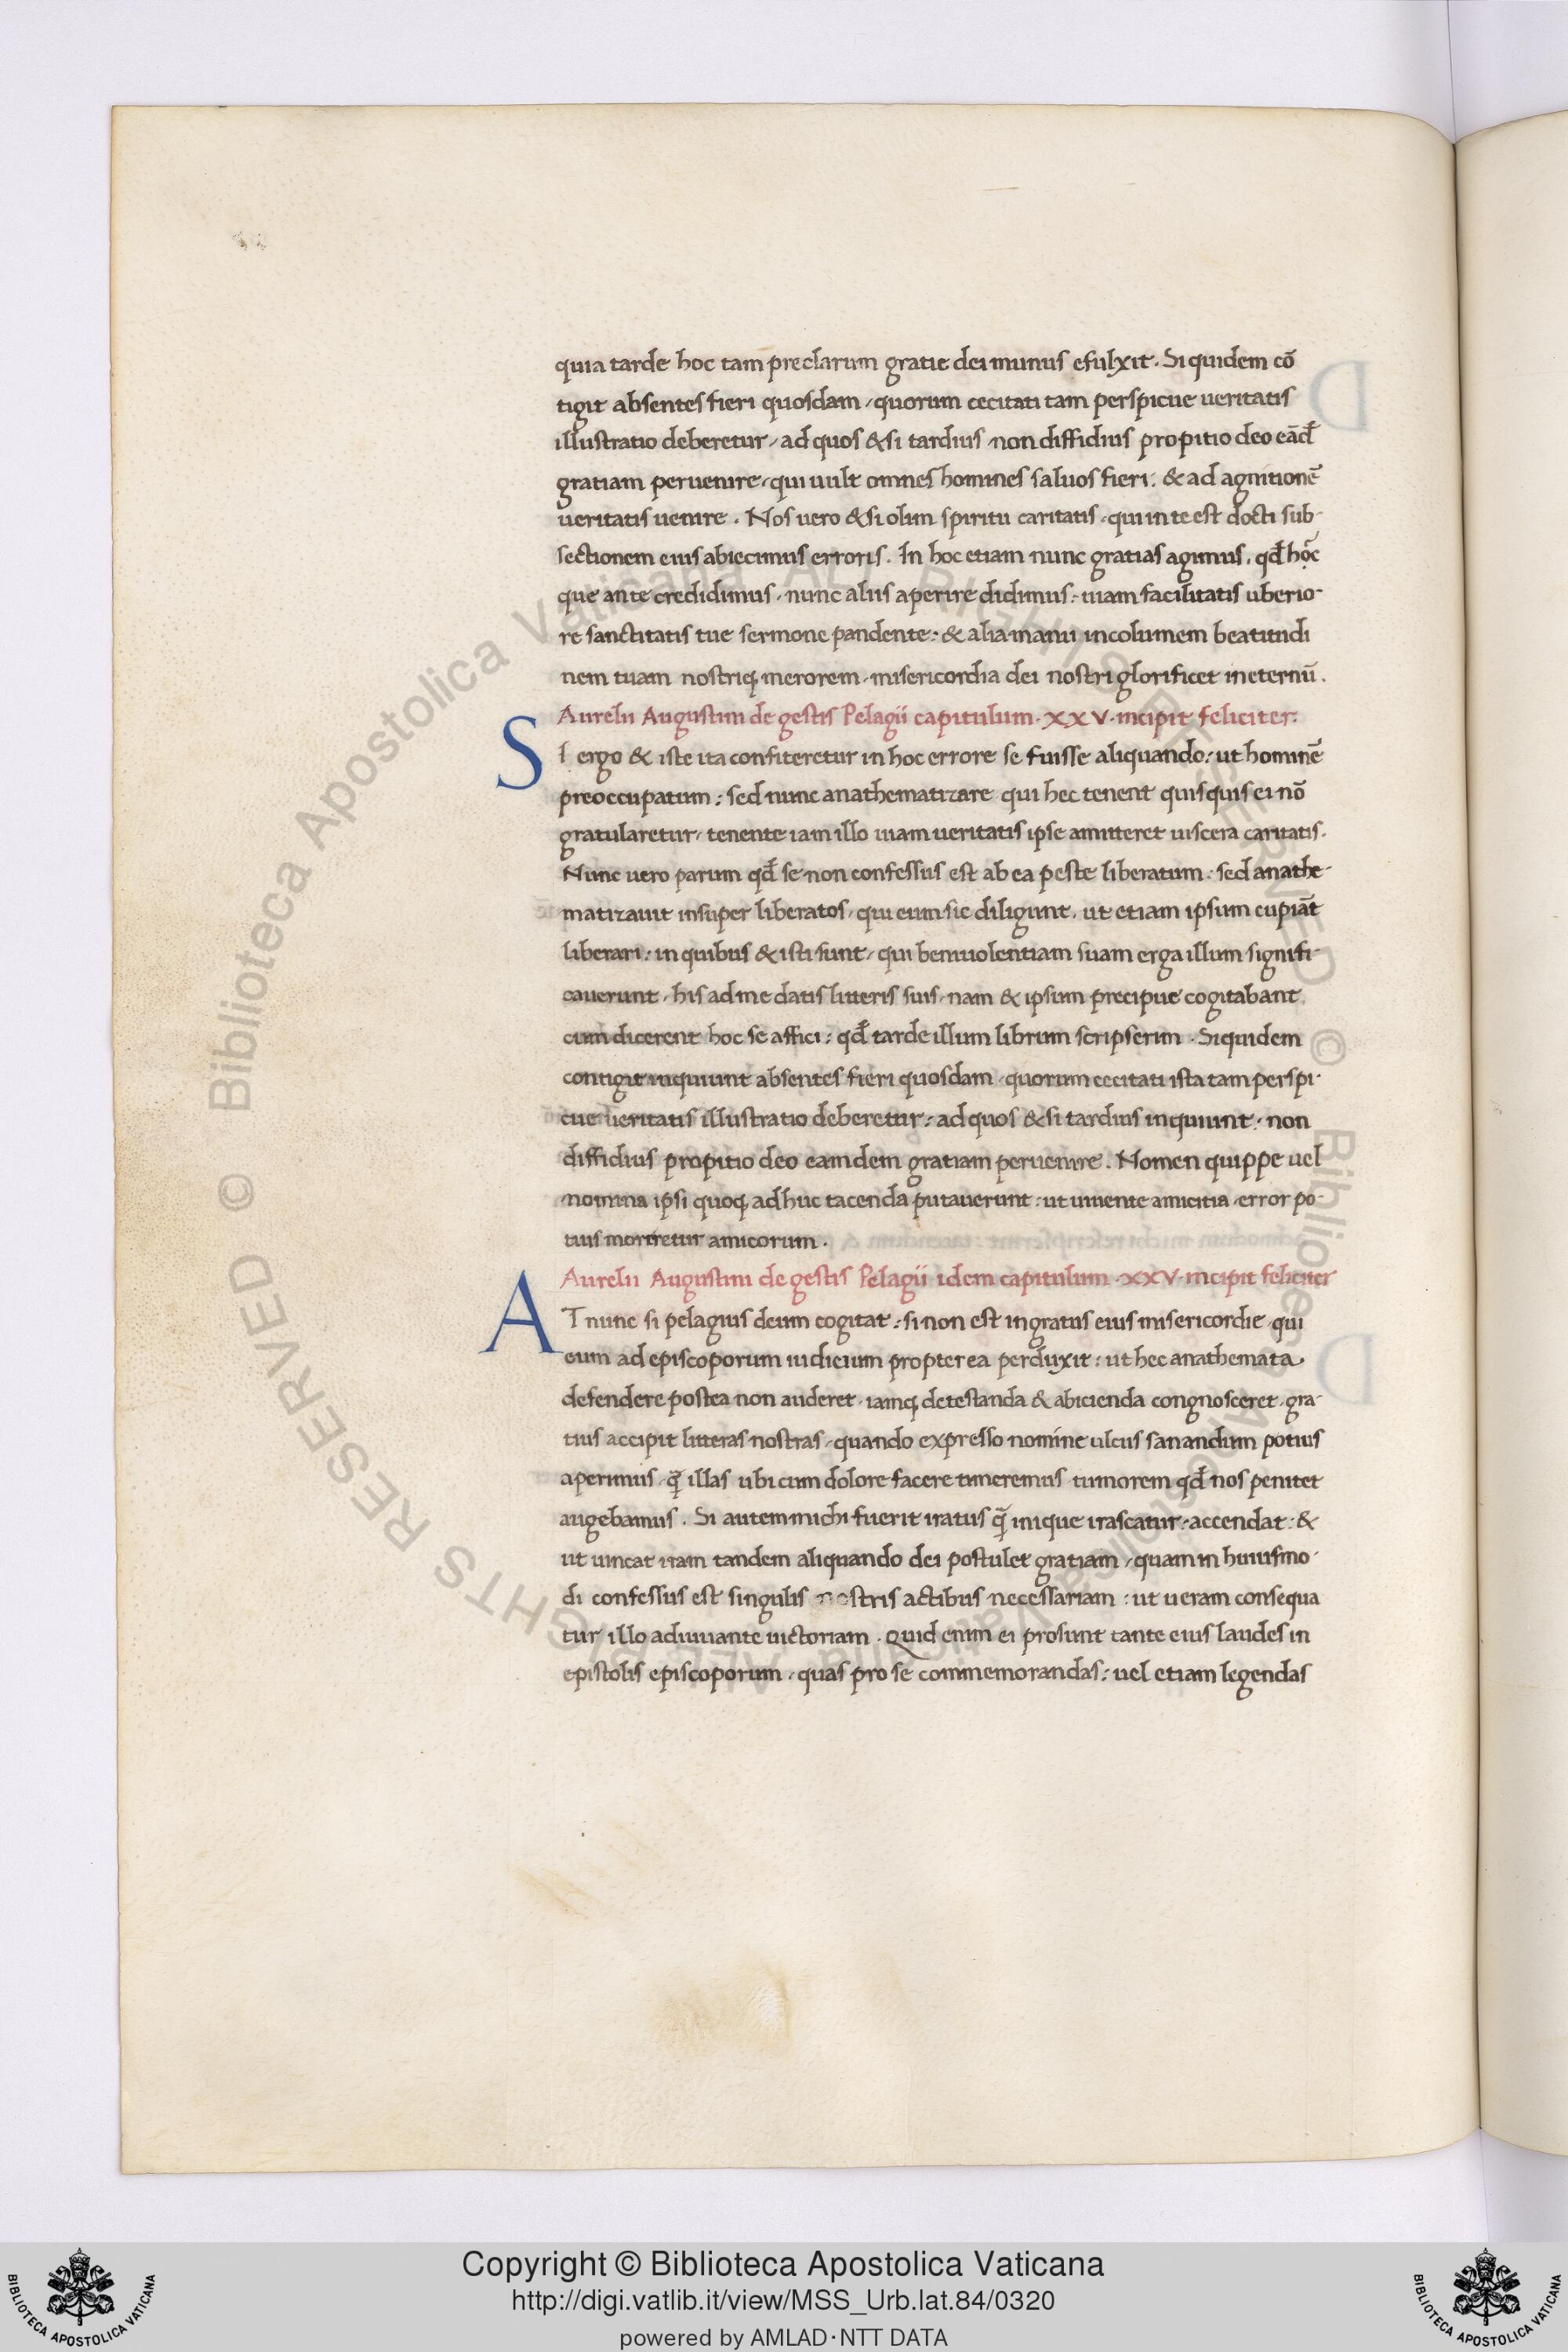 quia tarde hoc tam preclarum gratie dei munus efulxit. Si quidem cō
tigit absentes fieri quosdam, quorum cecitati tam perspicue ueritatis
illustratio deberetur, ad quos & si tardius non diffidius propitio deo eād̄
gratiam peruenire, qui uult omnes homines saluos fieri: & ad agnitionē
ueritatis uenire. Nos uero & si olim spiritu caritatis, qui in te est docti sub-
iectionem eius abiecimus erroris. In hoc etiam nunc gratias agimus, qd̄ hoc
que ante credidimus, nunc aliis aperire didimus: uiam facilitatis uberio-
re sanctitatis tue sermone pandente: & alia manu incolumem beatitudi
nem tuam nostriq; merorem, misericordia dei nostri glorificet in eternū.
Aurelii Augustini de gestis Pelagii capitulum .XXV. incipit feliciter.
SI ergo & iste ita confiteretur in hoc errore se fuisse aliquando: ut hominē
preoccupatum: sed nunc anathematizare qui hec tenent quisquis ei nō
gratularetur, tenente iam illo uiam ueritatis ipse amitteret uiscera caritatis.
Nunc uero parum qd̄ se non confessus est ab ea peste liberatum: sed anathe-
matizauit insuper liberatos, qui eum sic diligunt, ut etiam ipsum cupiāt
liberari: in quibus & isti sunt, qui beniuolentiam suam erga illum signifi-
cauerunt, his ad me datis litteris suis, nam & ipsum precipue cogitabant
cum dicerent hoc se affici: qd̄ tarde illum librum scripserim. Siquidem
contigit inquiunt absentes fieri quosdam, quorum cecitati ista tam perspi-
cue ueritatis illustratio deberetur: ad quos & si tardius inquiunt: non
diffidius propitio deo eamdem gratiam peruenire. Nomen quippe uel
nomina ipsi quoq; adhuc tacenda putauerunt: ut uiuente amicitia, error po-
tius moriretur amicorum.
Aurelii Augustini de gestis Pelagii idem capitulum .XXV. incipit feliciter
AT nunc si pelagius deum cogitat: si non est ingratus eius misericordie, qui
eum ad episcoporum iudicium propterea perduxit: ut hec anathemata
defendere postea non auderet, iamq; detestanda & abicienda congnosceret, gra-
tius accipit litteras nostras, quando expresso nomine ulcus sanandum potius
aperimus, q̄ illas ubi cum dolore facere timeremus tumorem qd̄ nos penitet
augebamus. Si autem michi fuerit iratus q̄ inique irascatur: accendat: &
ut uincat iram tandem aliquando dei postulet gratiam, quam in huiusmo-
di confessus est singulis nostris actibus necessariam: ut ueram consequa
tur illo adiuuante uictoriam. Quid enim ei prosunt tante eius laudes in
epistolis episcoporum, quas pro se commemorandas: uel etiam legendas
© Biblioteca Apostolica Vaticana ALL RIGHTS RESERVED © Biblioteca Apostolica Vaticana ALL RIGHTS RESERVED
Copyright © Biblioteca Apostolica Vaticana
http://digi.vatlib.it/view/MSS_Urb.lat.84/0320
powered by AMLAD·NTT DATA
BIBLIOTECA APOSTOLICA VATICANA
BIBLIOTECA APOSTOLICA VATICANA